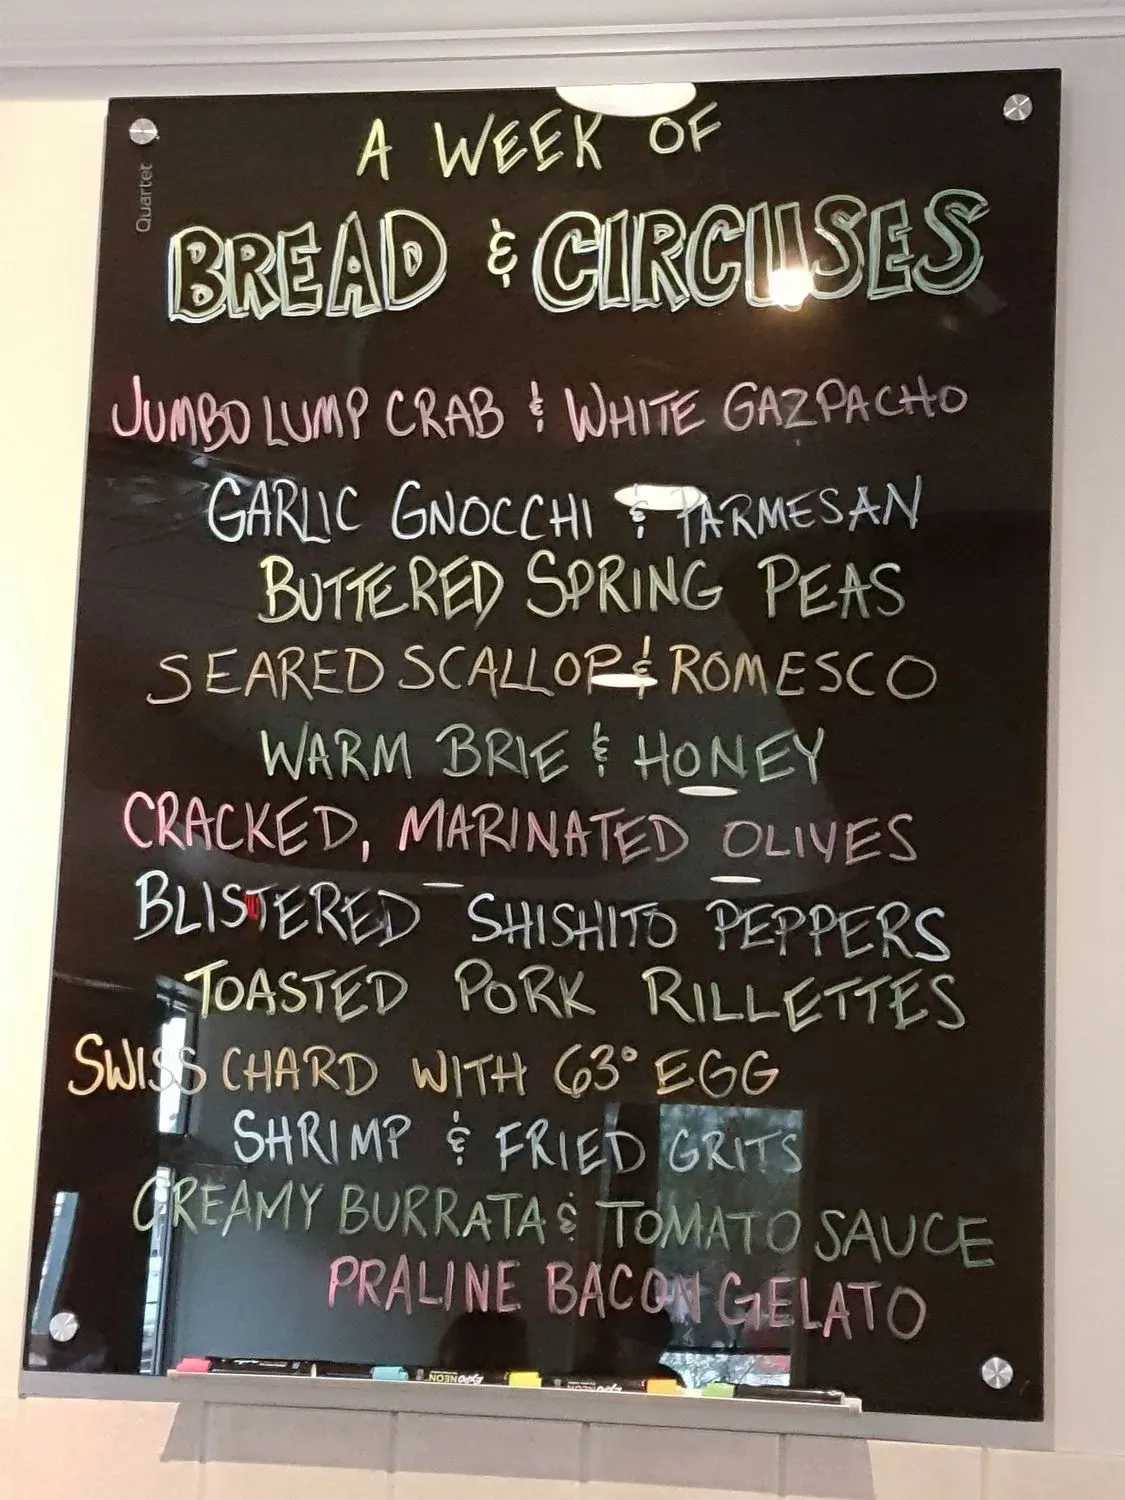 A WEEK OF
Quartet
BREAD & CIRCUSES
JUMBO LUMP CRAB & WHITE GAZPACHO
GARLIC GNOCCHI & PARMESAN
BUTTERED SPRING PEAS
SEARED SCALLOP & ROMESCO
WARM BRIE & HONEY
CRACKED, MARINATED OLIVES
BLISTERED SHISHITO PEPPERS
TOASTED PORK RILLETTES
SWISS CHARD WITH 63° EGG
SHRIMP & FRIED GRITS
CREAMY BURRATA & TOMATO SAUCE
PRALINE BACON GELATO
EXPO NEON